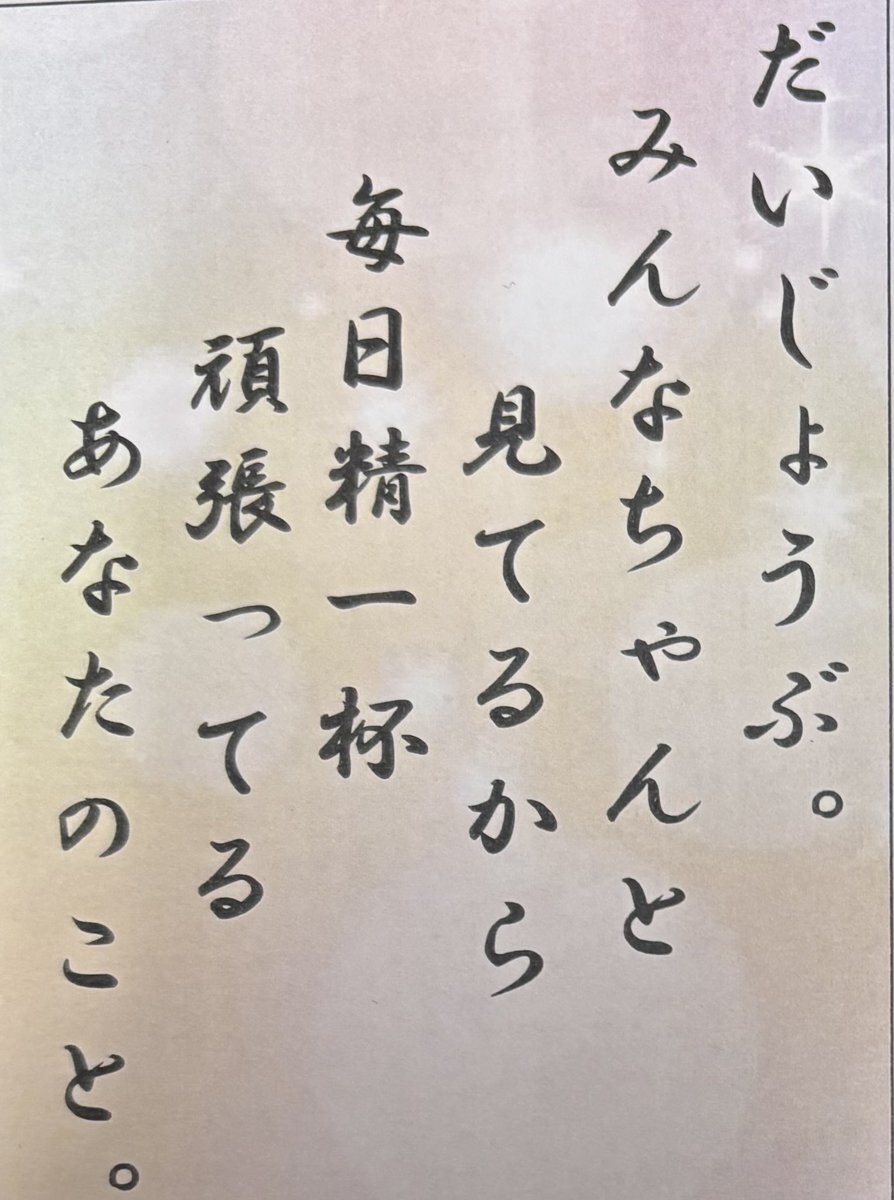 だいじょうぶ。
みんなちゃんと
見てるから
毎日精一杯
頑張ってる
あなたのこと。